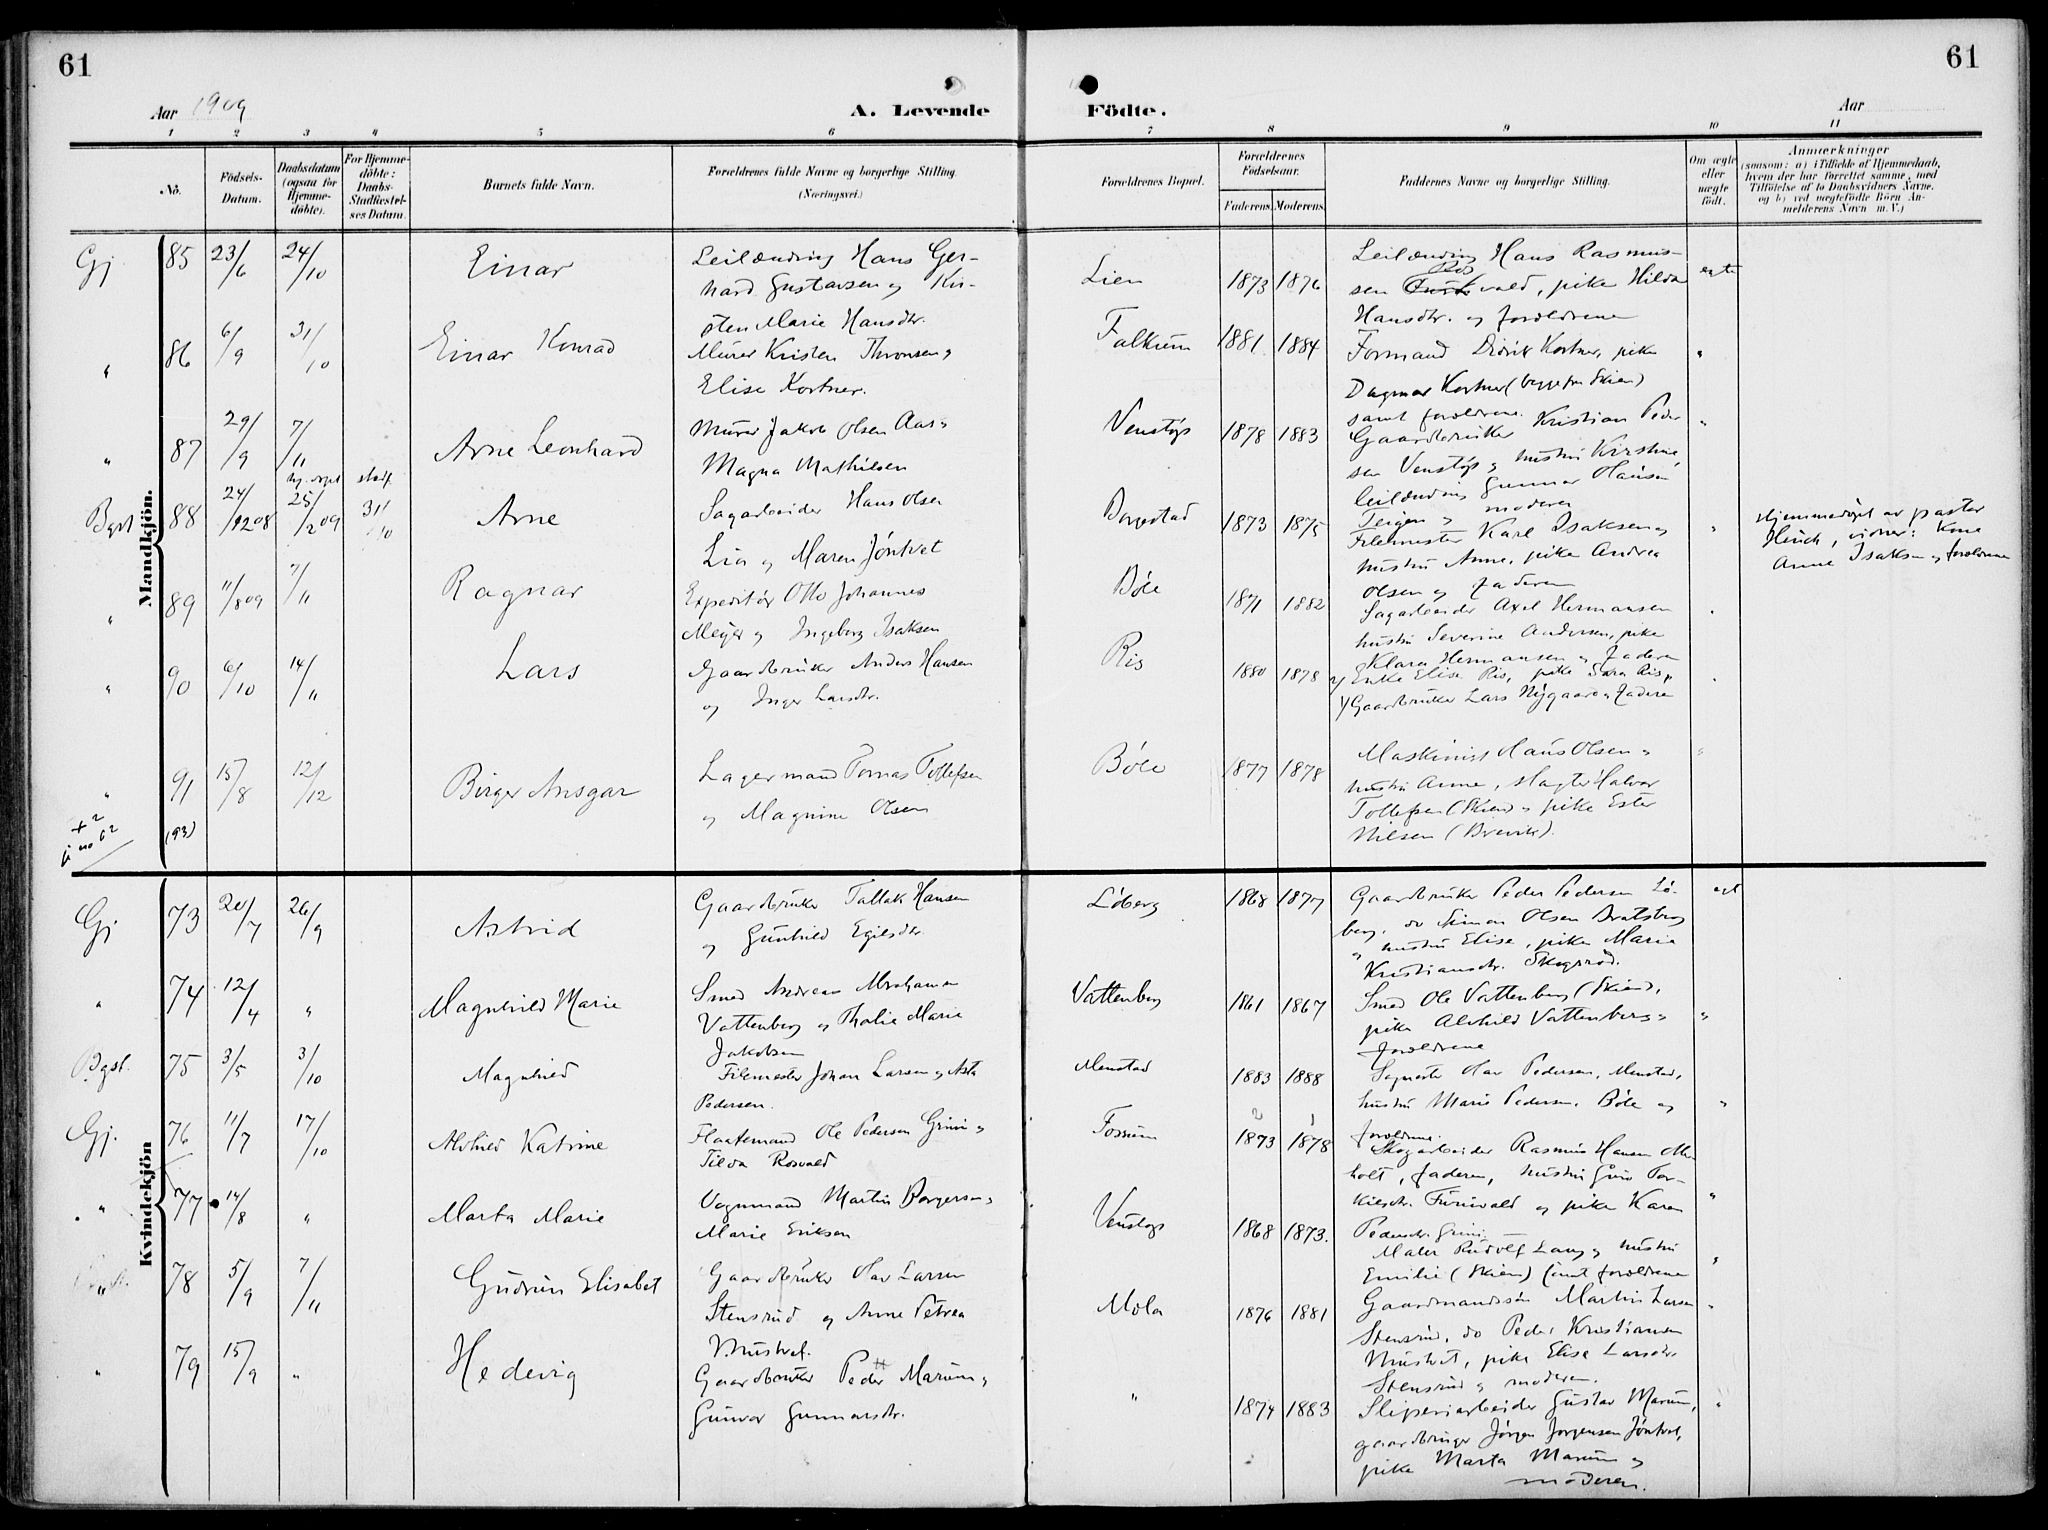 61
61
Aar 1909
A. Levende
Födte.
Aar
1 2 3 4 5 6 7 8 9 10 11
No.
Födsels-
Datum.
Daabsdatum
(ogsaa for
Hjemme-
döbte).
For Hjemme-
döbte:
Daabs-
Stadfæstel-
ses Datum.
Barnets fulde Navn.
Forældrenes fulde Navne og borgerlige Stilling.
(Næringsvei.)
Forældrenes Bopæl.
Forældrenes
Födselsaar.
Faderens. Moderens.
Faddernes Navne og borgerlige Stilling.
Om ægte
eller
uægte
födt.
Anmærkninger
(saasom: a) i Tilfælde af Hjemmedaab,
hvem der har forrettet samme, med
Tilföielse af to Daabsvidners Navne.
og b) ved uægtefödte Börn An-
melderens Navn m. V.)
Mandkjön.
Gj 85 23/6 24/10 Einar
Leilænding Hans Ger-
hard Gustavsen og Kir-
sten Marie Hansdtr.
Lien 1873 1876
Leilænding Hans Rasmus-
sen vald, pike Hilda
Hansdtr. og forældrene
ægte
" 86 6/9 31/10 Einar Konrad
Murer Kristen Thronsen og
Elise Kortner.
Falkum 1881 1884
Formand Didrik Kortner, pike
Dagmar Kortner (begge fra Skien)
samt forældrene.
"
" 87 29/9 7/11 Arne Leonhard
Murer Jakob Olsen Aas og
Magna Mathilsen
Venstøp 1878 1883
Gaardbruker Kristian Peder-
sen Venstøp og hustru Kirstine
leilænding Gunnar Hansen
Teigen og moderen
"
Bgst 88 24/12 08 25/2 09 stadf. 31/10 Arne
Sagarbeider Hans Olsen
Lia og Maren Jöntvet
Borgestad 1873 1875
Filemester Karl Isaksen og
hustru Anne, pike Andrea
Olsen og faderen
"
Hjemmedøpt av pastor
Hinch, vidner: Kone
Anne Isaksen og forældrene
" 89 11/8 09 7/11 Ragnar
Expeditør Otto Johannes
Meyer og Ingeborg Isaksen
Bøle 1871 1882
Sagarbeider Axel Hermansen
hustru Severine Andersen, pike
Klara Hermansen og faderen
"
" 90 6/10 14/11 Lars
Gaardbruker Anders Hansen
og Inger Larsdtr.
Ris 1880 1878
Enke Elise Ris, pike Sara Ris,
Gaardbruker Lars Nygaard og faderen
"
" 91 15/8 12/12 Birger Ansgar
Lagermand Tomas Tollefsen
og Magnine Olsen
Bøle 1877 1878
Maskinist Hans Olsen og
hustru Anne, slagter Halvor
Tollefsen (Skien) og pike Ester
Nilsen (Brevik).
"
+ 2
(93)
Kvindekjön
Gj 73 20/7 26/9 Astrid
Gaardbruker Tallak Hansen
og Gunhild Egilsdtr.
Löberg 1868 1877
Gaardbruker Peder Pedersen Lö-
berg, do Simon Olsen Bratsberg
og hustru Elise, pike Marie
Kristiansdtr. Skogsrød.
ægt
" 74 12/4 " Magnhild Marie
Smed Andreas Abrahamsen
Vattenberg og Thalie Marie
Jakobsen
Vattenberg 1861 1867
Smed Ole Vattenberg (Skien),
pike Alvhild Vattenberg og
forældrene
"
Bgst. 75 3/5 3/10 Magnhild
Filemester Johan Larsen og Asta
Pedersen.
Menstad 1883 1888
Sagmester Olav Pedersen, Menstad,
hustru Marie Pedersen, Bøle og
forældrene.
"
Gj. 76 11/7 17/10 Alvhild Katrine
Flaatemand Ole Pedersen Grini og
Tilda Rosvald
Fossum 1873 1878
Skogarbeider Rasmus Hansen
holt, faderen, hustru Guro Tor-
kilsdtr. Furuvald og pike Karen
Pedersdtr. Grini.
"
" 77 14/8 " Marta Marie
Vognmand Martin Borgersen og
Marie Eriksen
Venstøp 1868 1873.
Maler Rudolf Lang og hustru
Emilie (Skien) samt forældrene
"
" 78 5/9 7/11 Gudrun Elisabet
Gaardbruker Olav Larsen
Stensrud og Anne Petrea
Mustvet.
Mæla 1876 1881
Gaardmandssøn Martin Larsen
Stensrud, do Peder Kristiansen
Mustvet, pike Elise Larsdtr.
Stensrud og moderen.
"
" 79 15/9 " Hedevig
Gaardbruker Peder Marum og
Gunvor Gunnarsdtr.
" 1874 1883
Sliperiarbeider Gustav Marum,
gaardbruger Jørgen Jørgensen Jøntvet,
pike Marta Marum og
moderen.
"